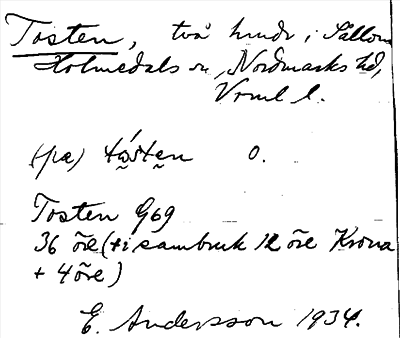 Tosten, två hmdr i Sällom
Holmedals sn, Nordmarks hd,
Vrml l.
(pæ) tósten o.
Tosten G69
36 öre (+ i sambruk 12 öre Krona
+ 4 öre)
E. Andersson 1934.